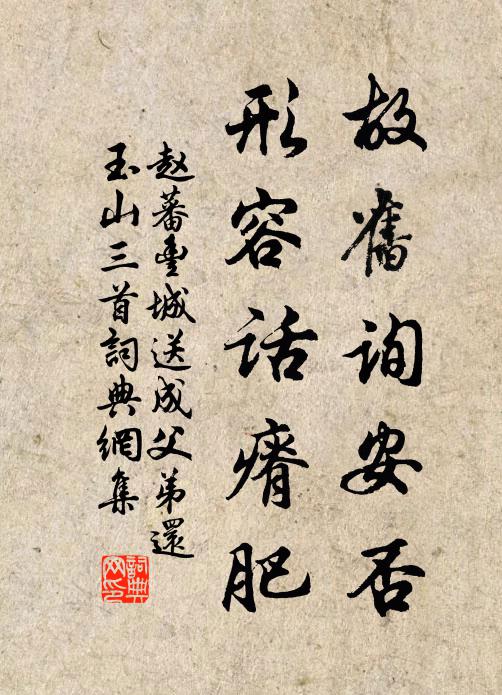 故舊询安否
形容话瘠肥
赵蕃豊城送成父弟還
玉山三首詞典網集
詞典
网印